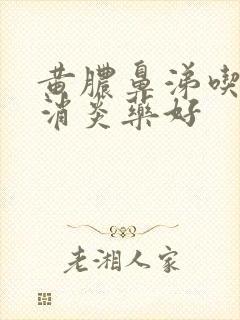 黄膿鼻涕喫
消炎藥好
老湘人家